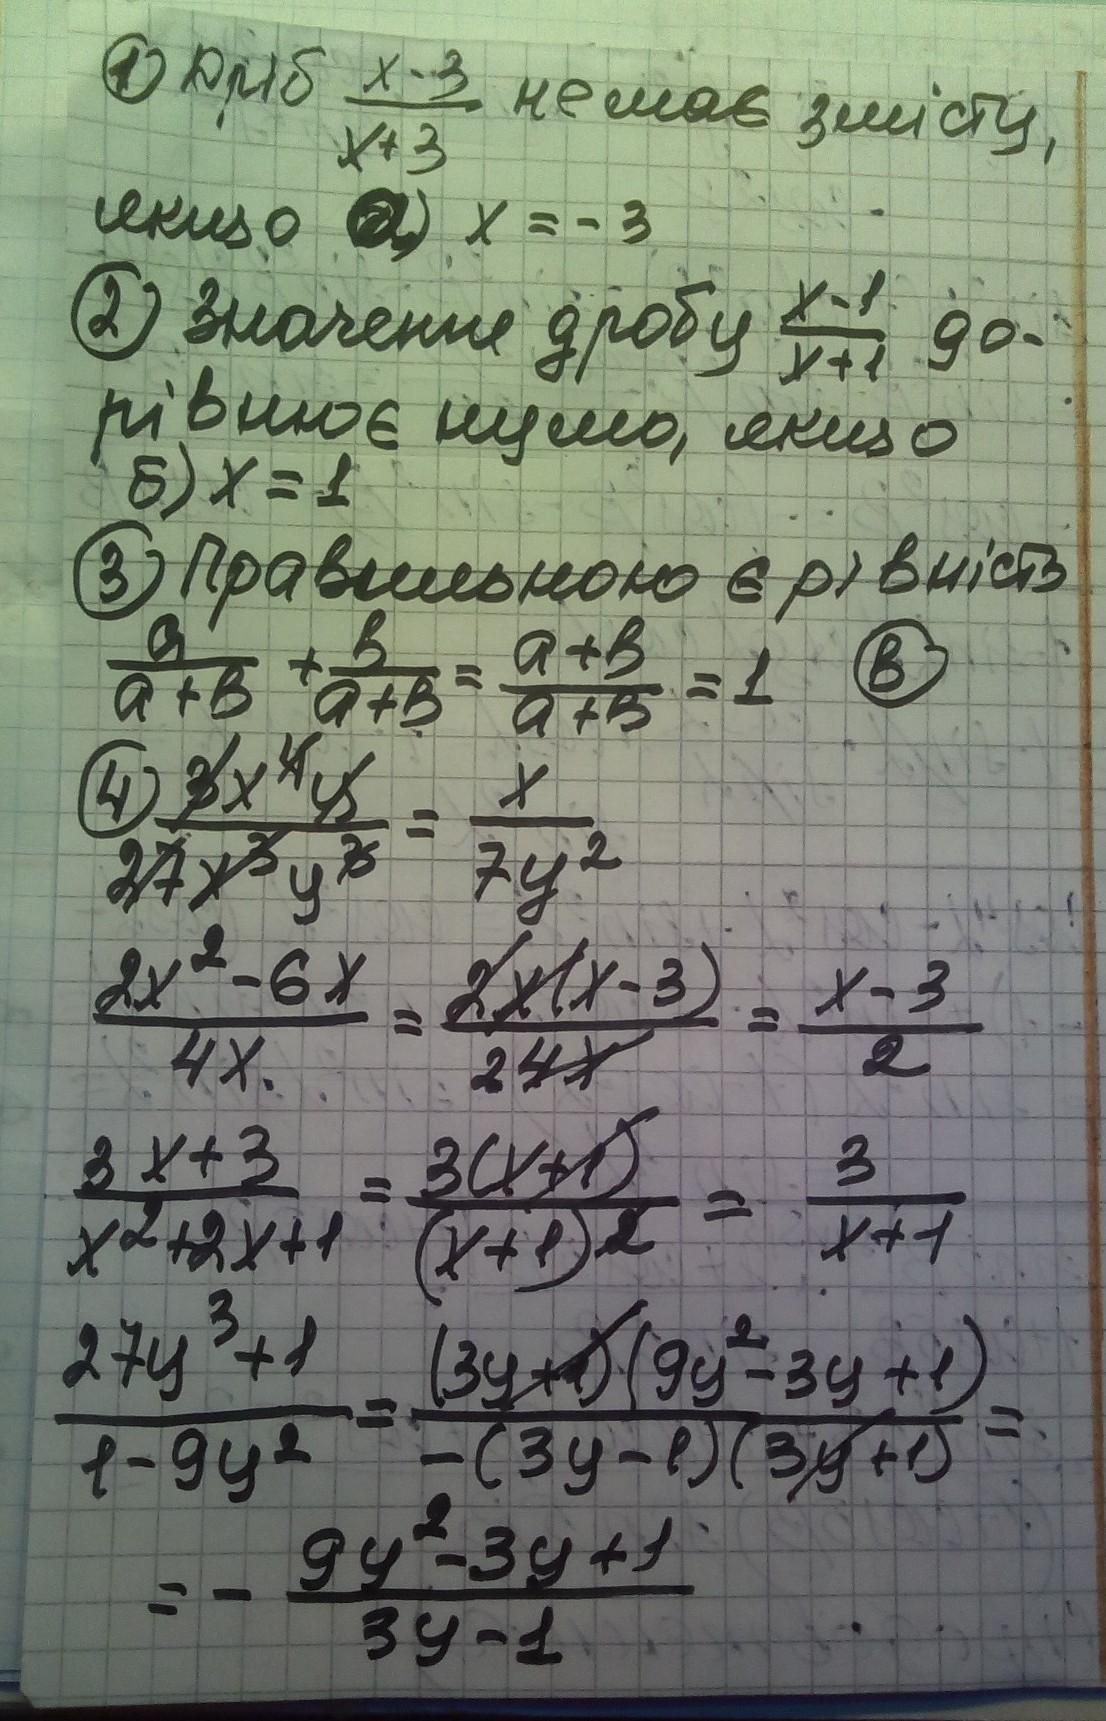 1) Дріб (x-3)/(x+3) не має змісту,
якщо а) x = -3
2) Значення дробу (x-1)/(x+1) до-
рівнює нулю, якщо
б) x = 1
3) Правильною є рівність
a/(a+b) + b/(a+b) = (a+b)/(a+b) = 1 В
4) 3x⁴y/(27x³y³) = x/(7y²)
(2x²-6x)/(4x) = 2x(x-3)/(24x) = (x-3)/2
(3x+3)/(x²+2x+1) = 3(x+1)/(x+1)² = 3/(x+1)
(27y³+1)/(1-9y²) = (3y+1)(9y²-3y+1)/(-(3y-1)(3y+1)) =
= - (9y²-3y+1)/(3y-1)